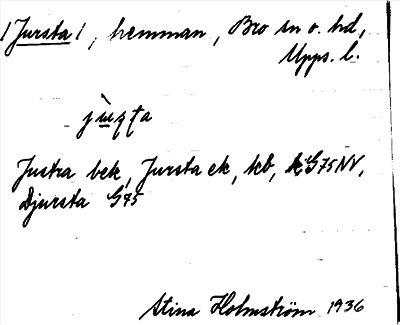 /Jursta/, hemman, Bro sn o. hd,
Upps. l.
Justra bek, Jursta ek, kb, G75NV,
Djursta G75
Stina Holmström 1936